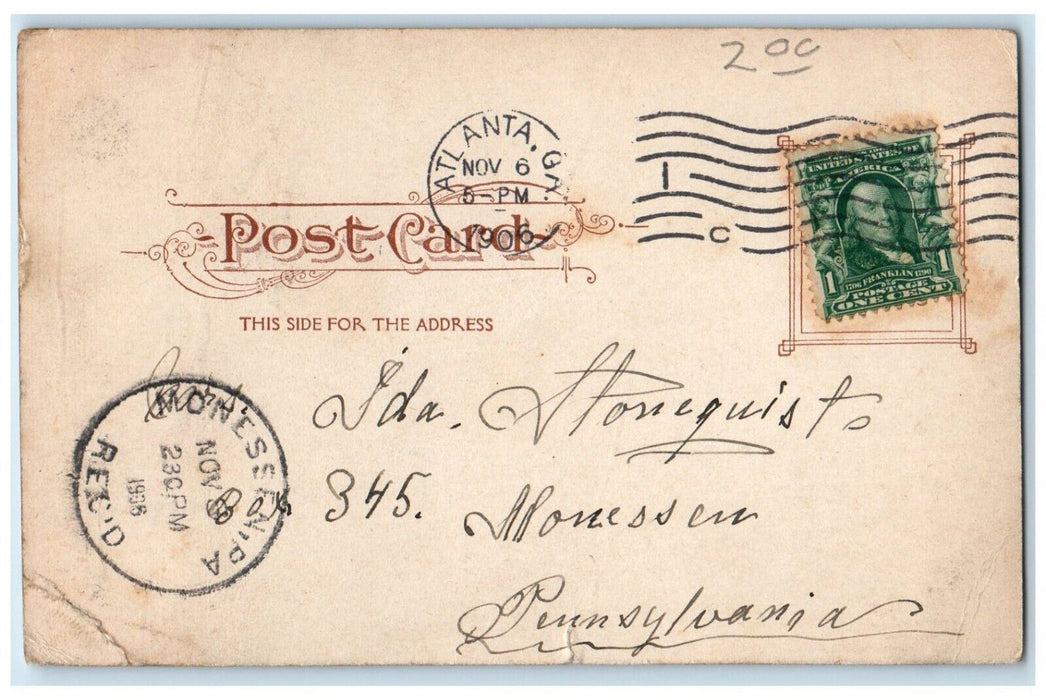 2 00
ATLANTA, GA.
NOV 6
5-PM
1906
1
C
UNITED STATES OF
AMERICA
1 1706 FRANKLIN 1790 1
POSTAGE
ONE CENT
Post Card
THIS SIDE FOR THE ADDRESS
Ida. Stonequists
Box 345. Monessen
Pennsylvania
MONESSEN, PA
NOV 8
230PM
1906
REC'D